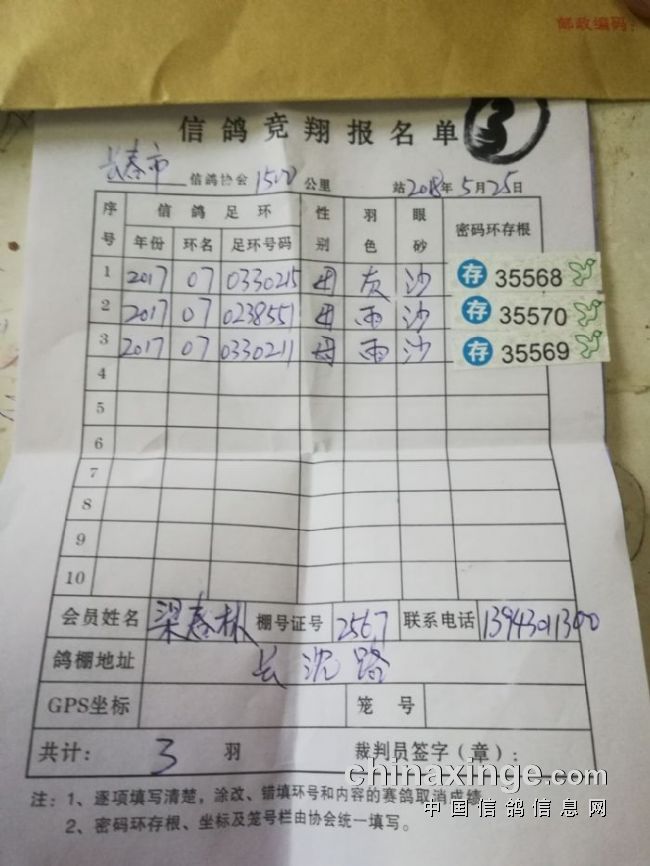 邮政编码:
信鸽竞翔报名单
3
长春市 信鸽协会 1500 公里 站 2018年 5月 25日
序号 信鸽足环 性别 羽色 眼砂 密码环存根
年份 环名 足环号码
1 2017 07 0330215 母 灰 沙 存 35568
2 2017 07 0238551 母 雨 沙 存 35570
3 2017 07 0330211 母 雨 沙 存 35569
4
5
6
7
8
9
10
会员姓名 梁春林 棚号证号 2567 联系电话 13943011300
鸽棚地址 长沈路
GPS坐标 笼号
共计: 3 羽 裁判员签字(章):
注:1、逐项填写清楚,涂改、错填环号和内容的赛鸽取消成绩
2、密码环存根、坐标及笼号栏由协会统一填写。
chinaxinge.com
中国信鸽信息网